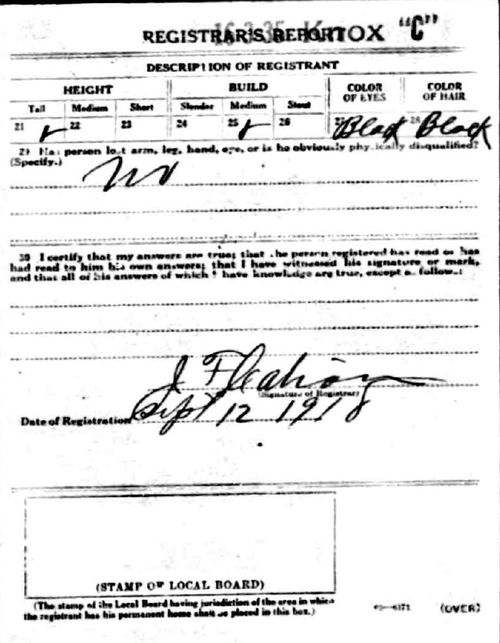 REGISTRAR'S REPORT
"C"
DESCRIPTION OF REGISTRANT
HEIGHT BUILD COLOR OF EYES COLOR OF HAIR
Tall Medium Short Slender Medium Stout
21 ✓ 22 23 24 25 ✓ 26 27 Black 28 Black
29 Has person lost arm, leg, hand, eye, or is he obviously physically disqualified?
(Specify.)
No
30 I certify that my answers are true; that the person registered has read or has
had read to him his own answers; that I have witnessed his signature or mark,
and that all of his answers of which I have knowledge are true, except as follows:
J
(Signature of Registrar)
Date of Registration Sept 12 1918
(STAMP OF LOCAL BOARD)
(The stamp of the Local Board having jurisdiction of the area in which
the registrant has his permanent home shall be placed in this box.)
(OVER)